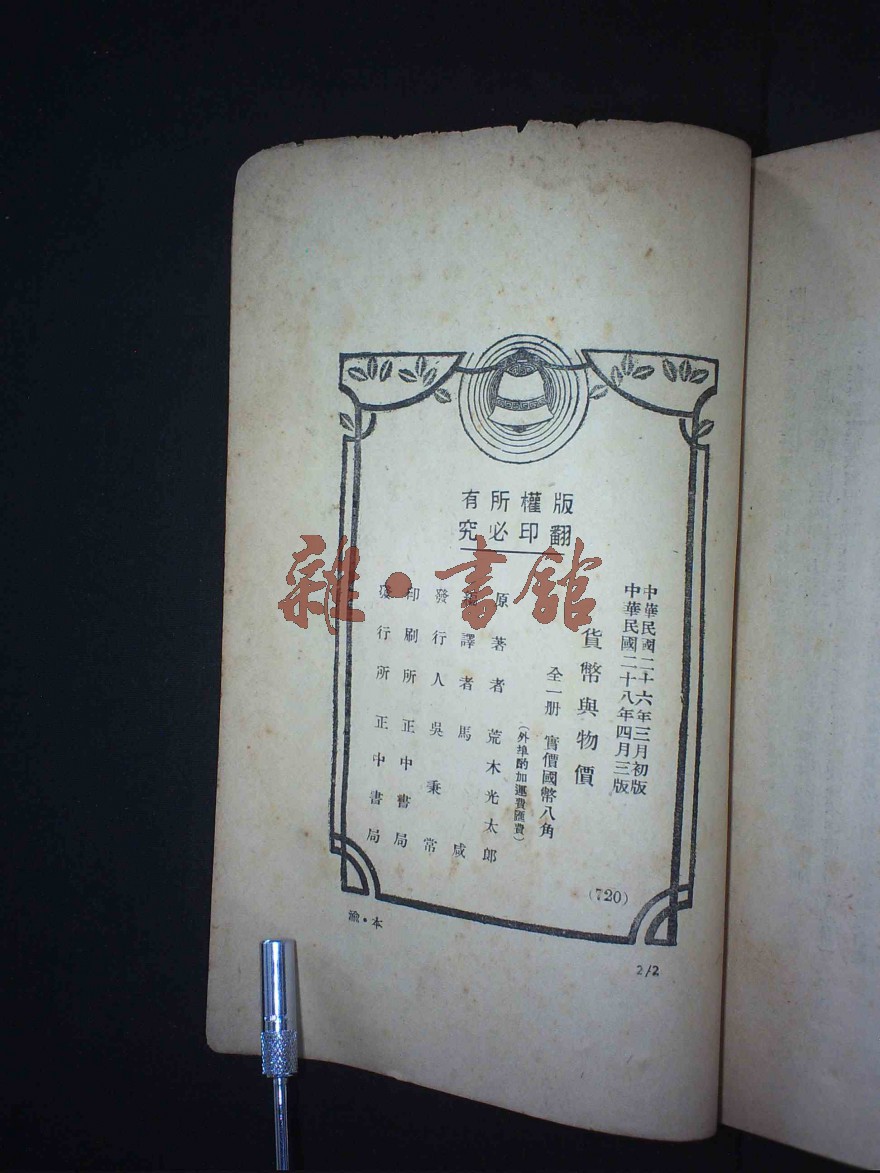 版權所有
翻印必究
中華民國二十六年三月初版
中華民國二十八年四月三版
貨幣與物價
全一册 實價國幣八角
(外埠酌加運費匯費)
原著者 荒木光太郎
編譯者 馬咸
發行人 吳秉常
印刷所 正中書局
發行所 正中書局
(720)
渝·本
2/2
雜·書館